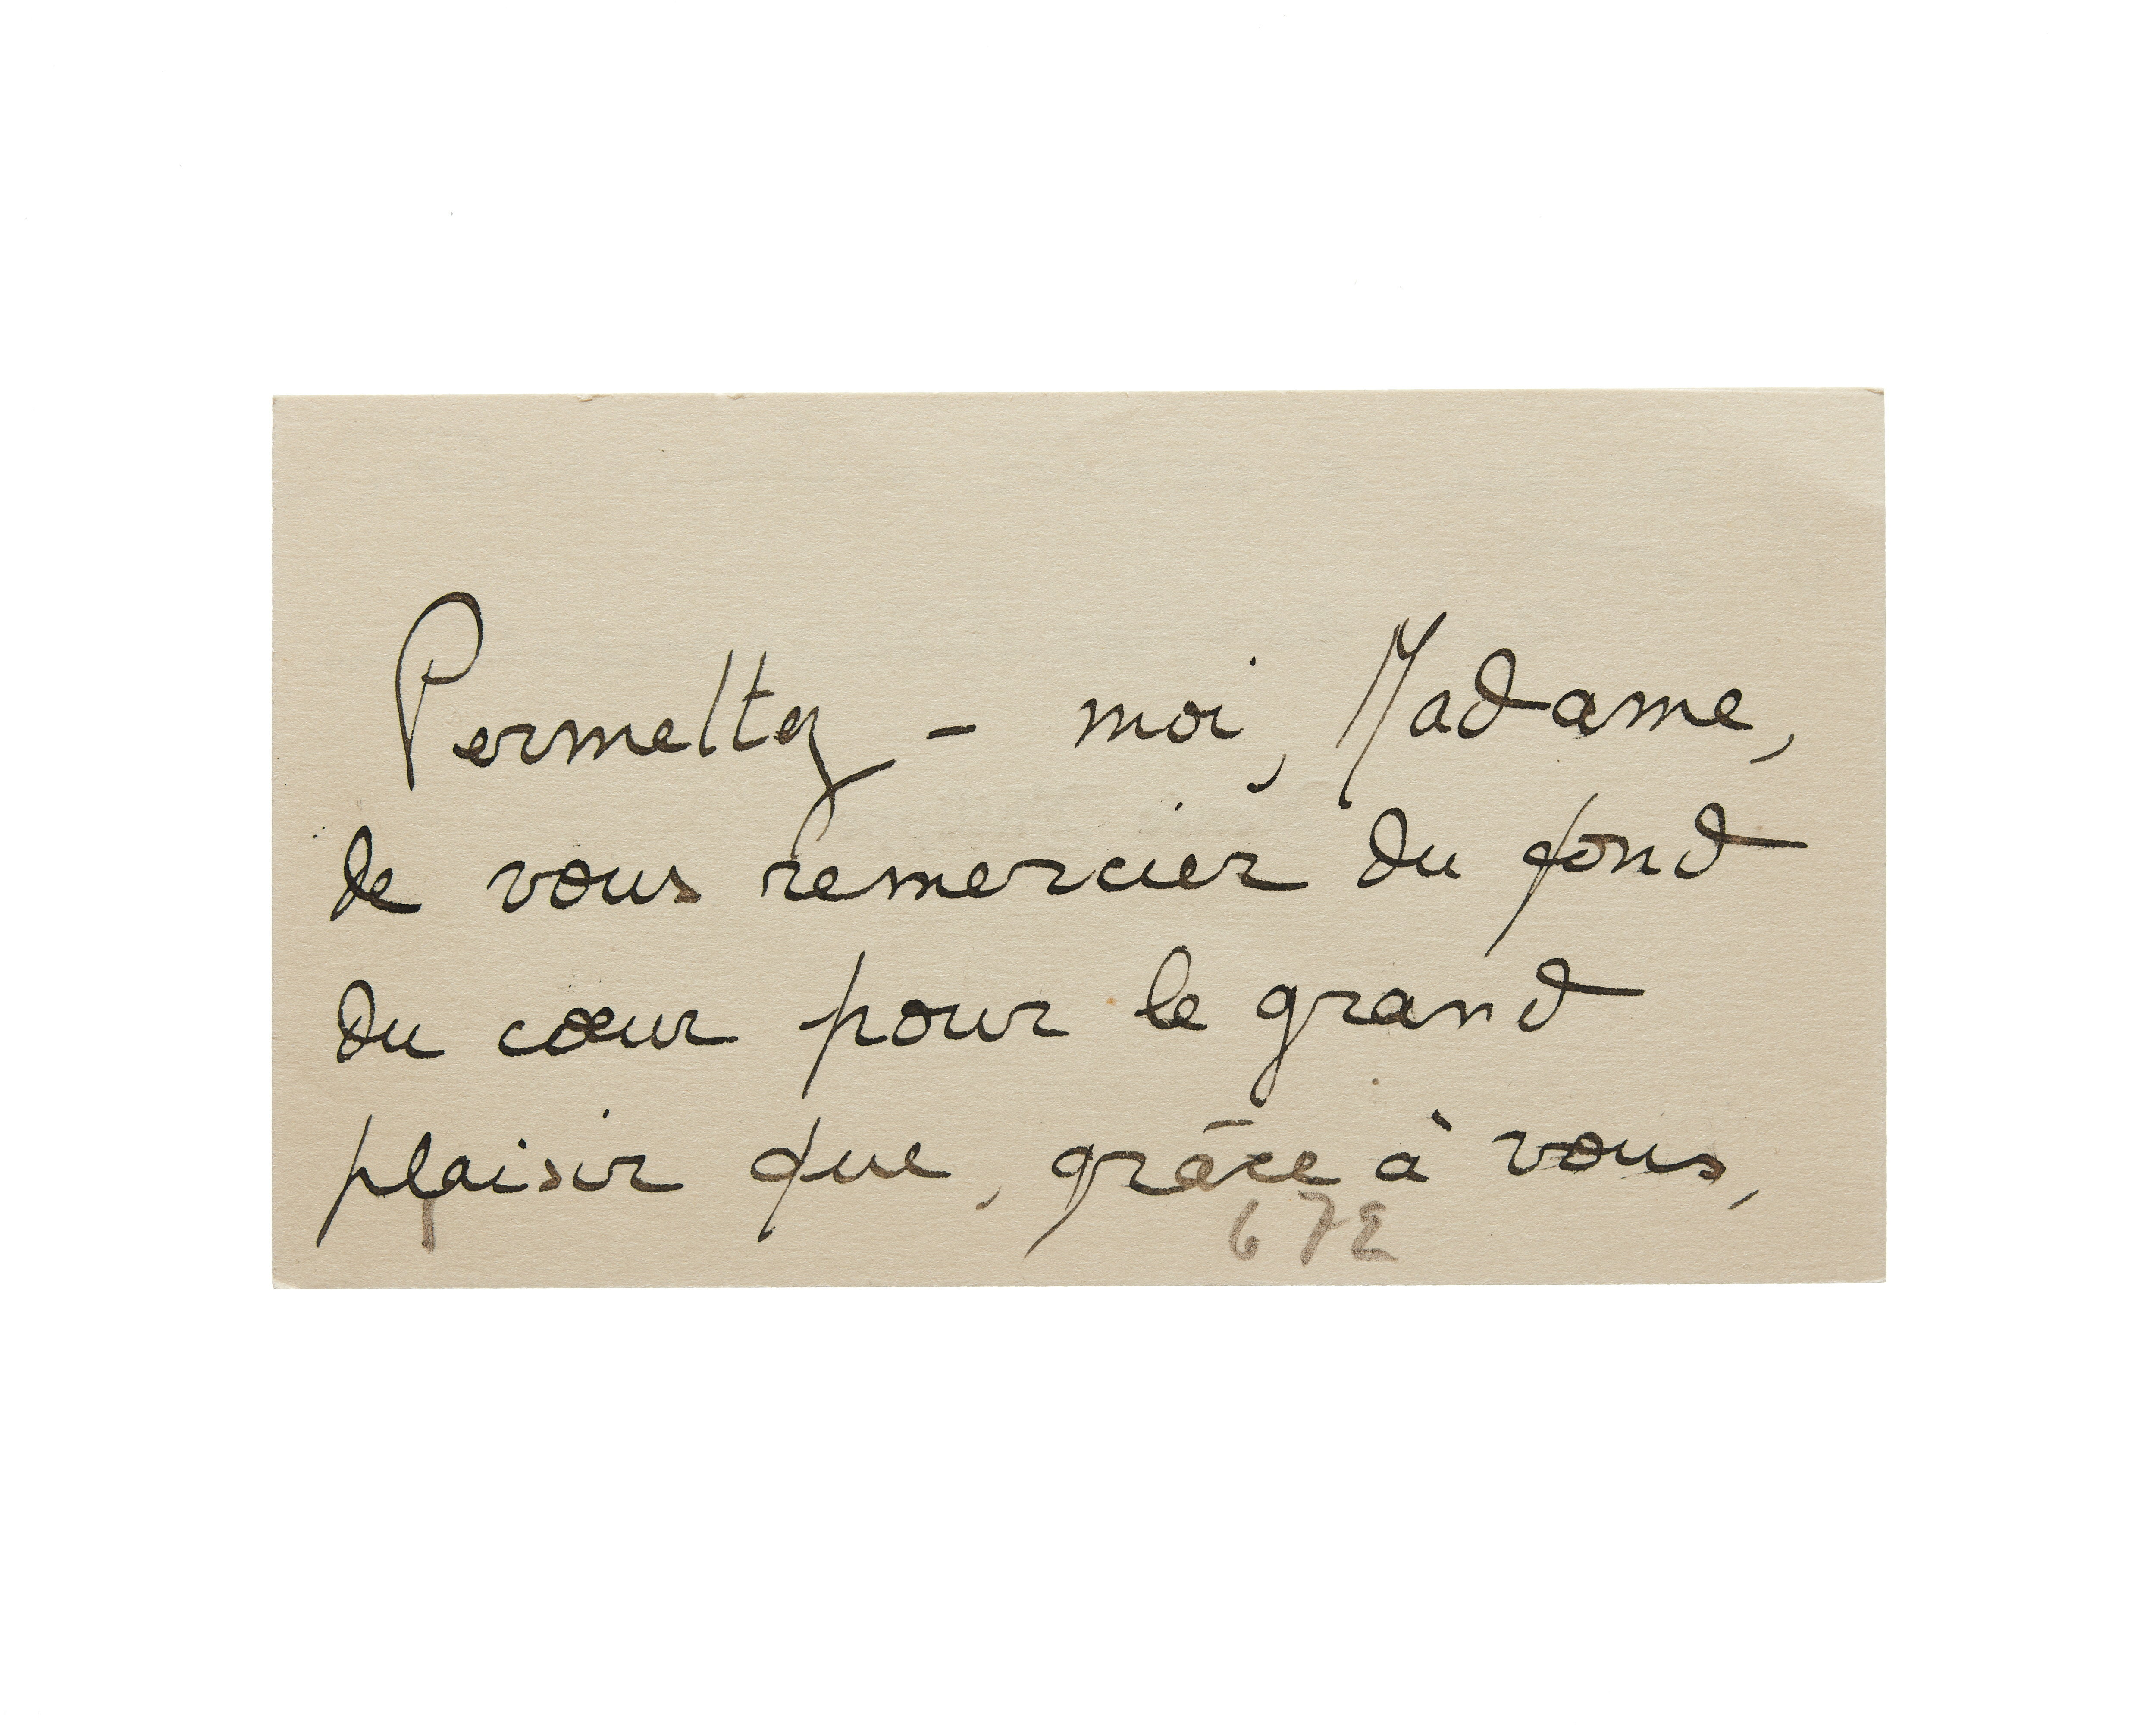 Permettez-moi, Madame,
de vous remercier du fond
du cœur pour le grand
plaisir que, grâce à vous,
672